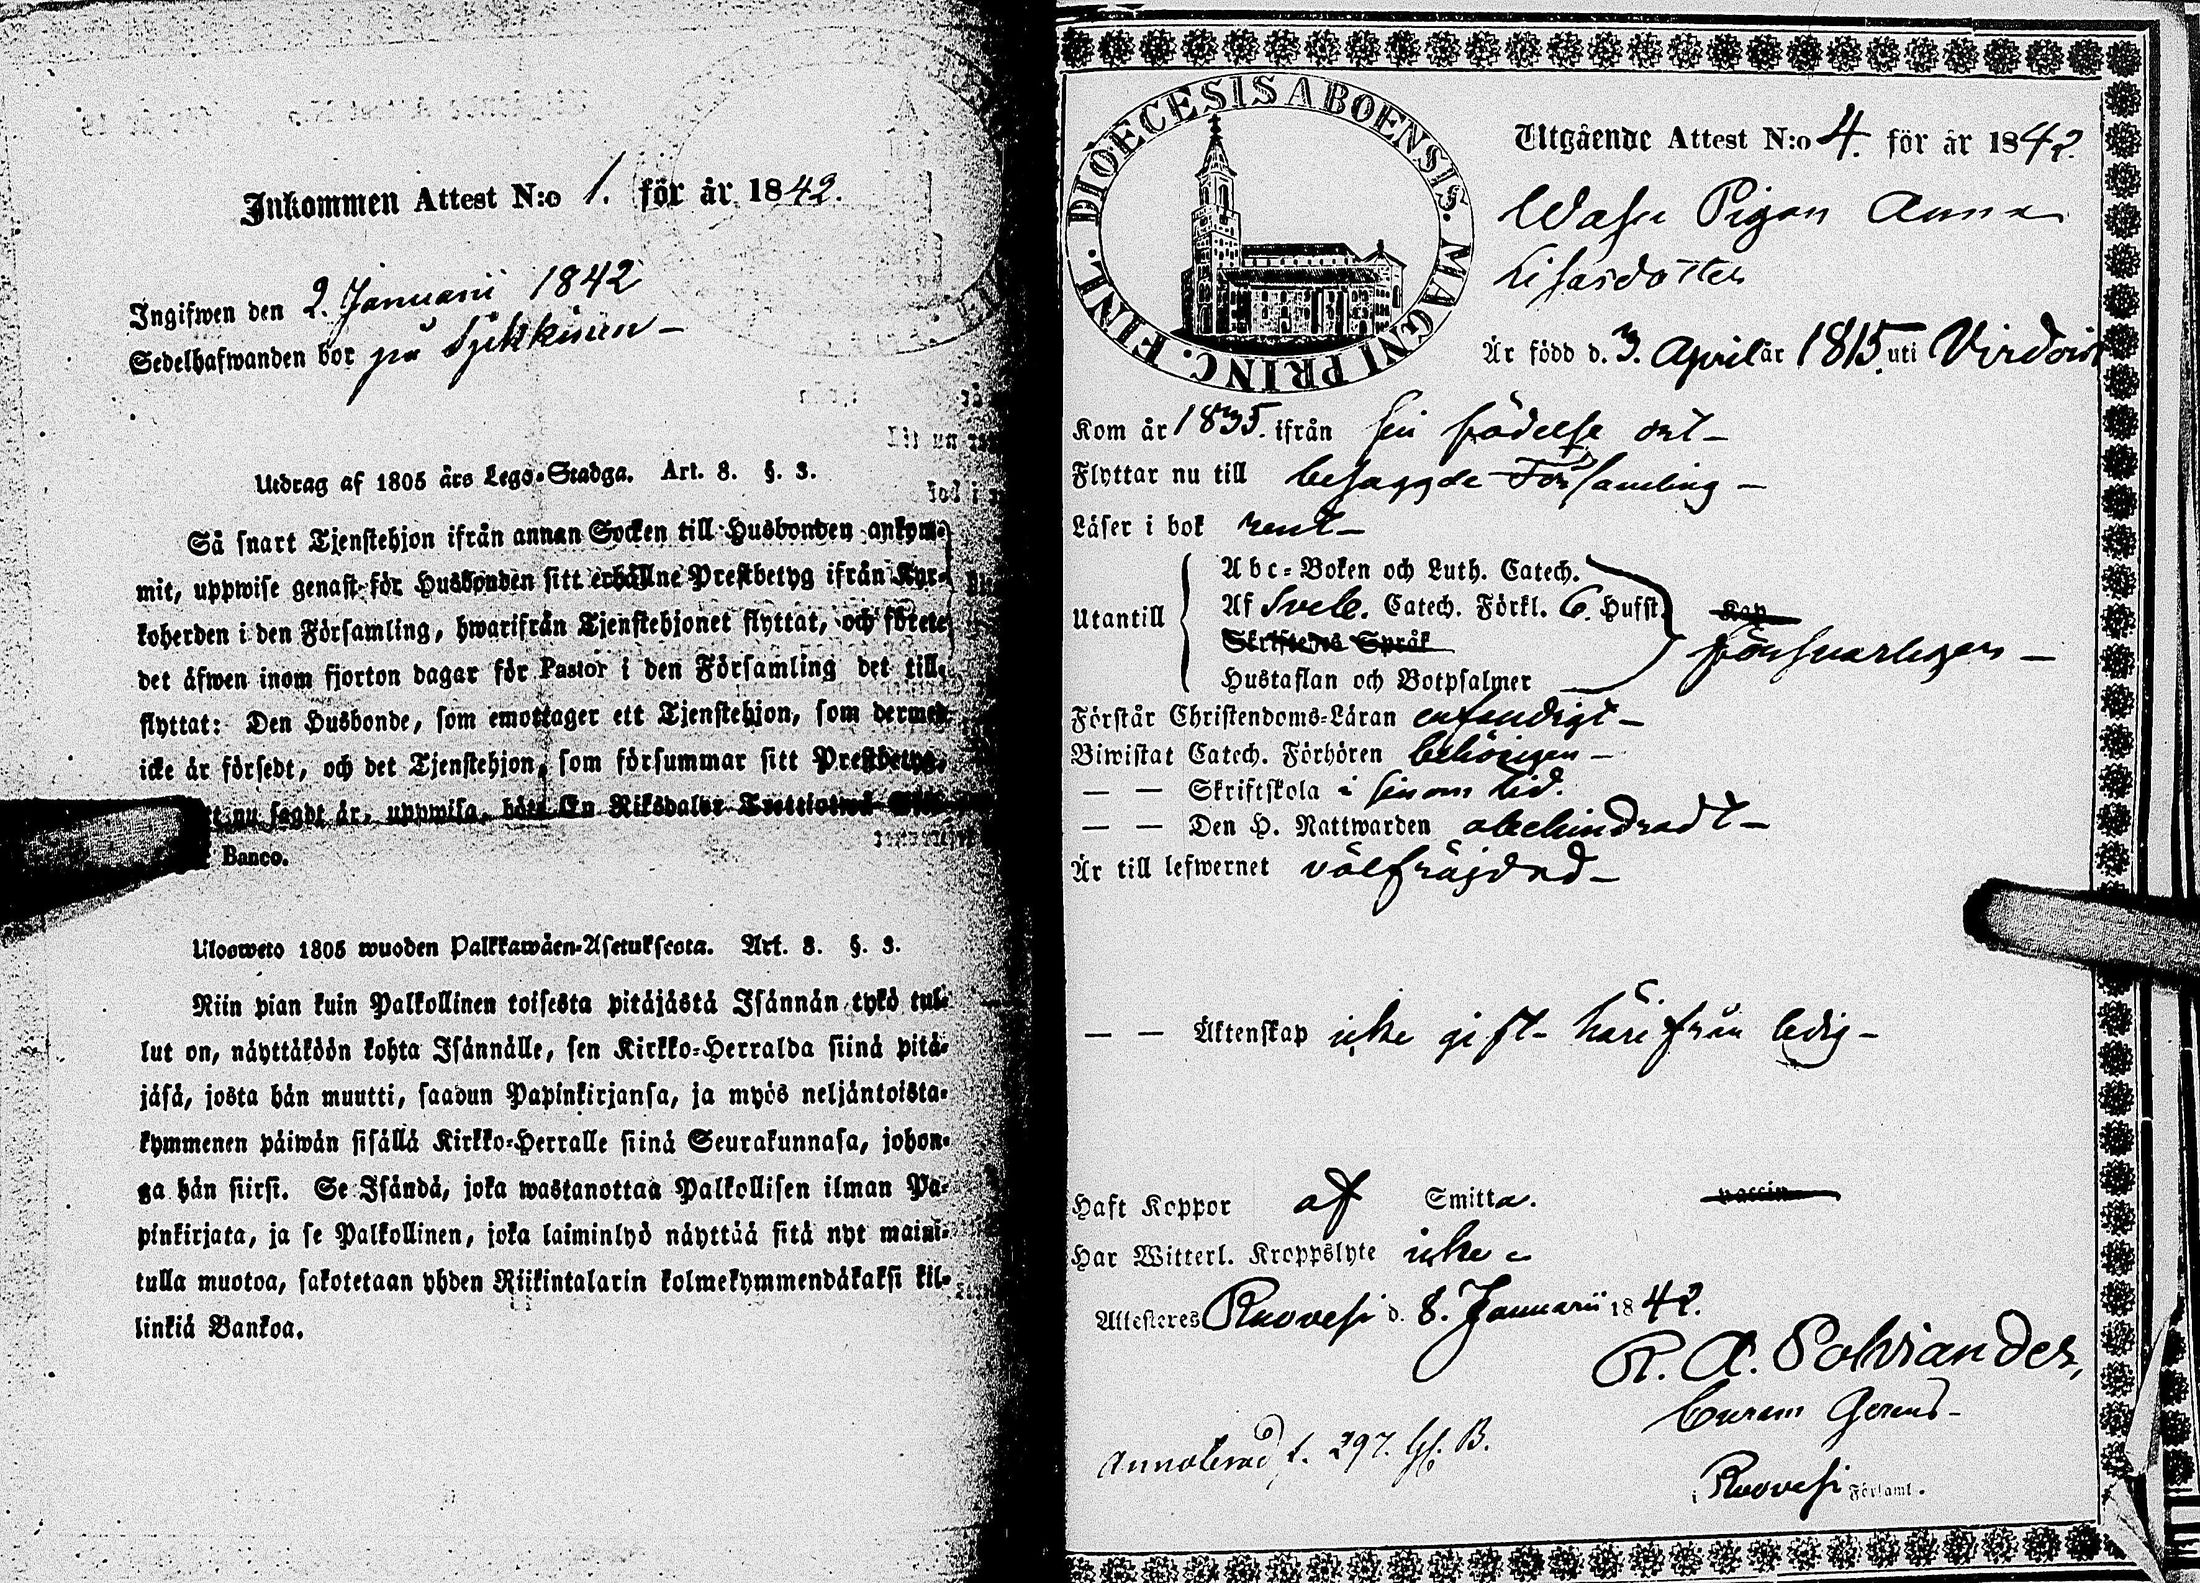 Inkommen Attest N:o 1. för år 1842.
Ingifwen den 2. Januarii 1842
Sedelhafwanden bor på
Utdrag af 1805 års Lego-Stadga. Art. 8. §. 3.
Så snart Tjenstehjon ifrån annan Socken till Husbonden ankom-
mit, uppwise genast för Husbonden sitt erhållne Prestbetyg ifrån Kyr-
koherden i den Församling, hwarifrån Tjenstehjonet flyttat, och förete
det äfwen inom fjorton dagar för Pastor i den Församling det till-
flyttat: Den Husbonde, som emottager ett Tjenstehjon, som dermed
icke är försedt, och det Tjenstehjon, som försummar sitt Prestbetyg,
nu sagdt är, uppwisa, böte En Riksdaler Trettiotwå
Banco.
Ulosweto 1805 wuoden Palkkawäen-Asetuksesta. Art. 8. §. 3.
Niin pian kuin Palkollinen toisesta pitäjästä Isännän tykö tul-
lut on, näyttäköön kohta Isännälle, sen Kirkko-Herralda siinä pitä-
jäsä, josta hän muutti, saadun Papinkirjansa, ja myös neljäntoista-
kymmenen päiwän sisällä Kirkko-Herralle siinä Seurakunnasa, johon-
ga hän siirsi. Se Isändä, joka wastanottaa Palkollisen ilman Pa-
pinkirjata, ja se Palkollinen, joka laiminlyö näyttää sitä nyt maini-
tulla muotoa, sakotetaan yhden Riikintalarin kolmekymmendäkaksi kil-
linkiä Bankoa.
DIOECESIS ABOENSIS. MAGNI PRINC. FINL.
Utgående Attest N:o 4. för år 1842.
Pigan Anna
Lisasdotter
Är född d. 3. April år 1815. uti Virdois
Kom år 1835. ifrån sin födelse ort-
Flyttar nu till besagde Församling -
Läser i bok rent-
Utantill
Abc-Boken och Luth. Catech.
Af Sveb. Catech. Förkl. 6. Hufst.
Skriftenes Språk
Hustaflan och Botpsalmer
Kap
försvarligen -
Förstår Christendoms-Läran enfaldigt -
Biwistat Catech. Förhören behörigen -
— — Skriftskola i sinom tid.
— — Den H. Nattwarden obehindradt -
Är till lefwernet välfräjdad -
— — Äktenskap icke gift - härifrån ledig -
Haft Koppor af Smitta. vaccin
Har Witterl. Kroppslyte icke -
Attesteras Ruovesi d. 8. Januarii 1842.
Curam Gerens -
i Ruovesi Församl.
Annoterad f. 297.